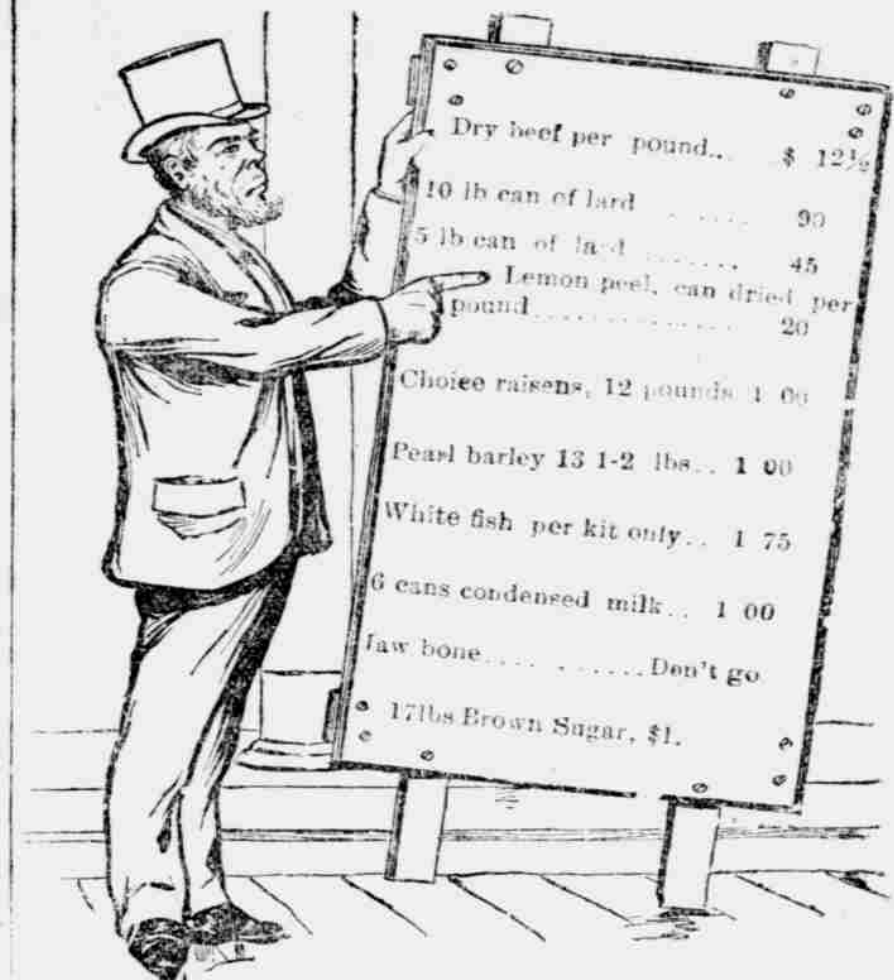 Dry beef per pound... $ 12½
10 lb can of lard ...... 90
5 lb can of lard ....... 45
Lemon peel, can dried per
pound............... 20
Choice raisens, 12 pounds 1 00
Pearl barley 13 1-2 lbs.. 1 00
White fish per kit only.. 1 75
6 cans condensed milk.. 1 00
Jaw bone.... ......Don't go
17lbs Brown Sugar, $1.